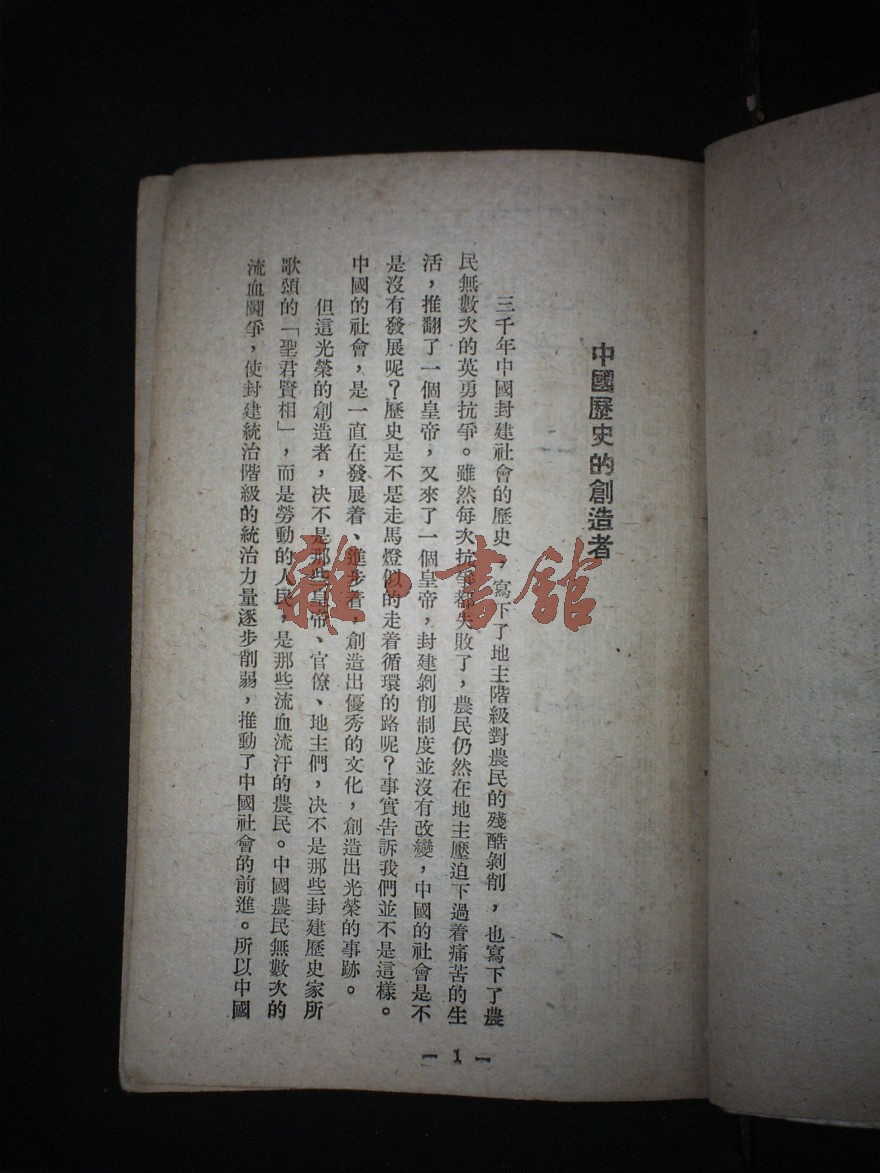 中國歷史的創造者
三千年中國封建社會的歷史，寫下了地主階級對農民的殘酷剝削，也寫下了農
民無數次的英勇抗爭。雖然每次抗爭都失敗了，農民仍然在地主壓迫下過着痛苦的生
活，推翻了一個皇帝，又來了一個皇帝，封建剝削制度並沒有改變，中國的社會是不
是沒有發展呢？歷史是不是走馬燈似的走着循環的路呢？事實告訴我們並不是這樣。
中國的社會，是一直在發展着、進步着，創造出優秀的文化，創造出光榮的事跡。
但這光榮的創造者，决不是那些皇帝、官僚、地主們，决不是那些封建歷史家所
歌頌的「聖君賢相」，而是勞動的人民，是那些流血流汗的農民。中國農民無數次的
流血鬪爭，使封建統治階級的統治力量逐步削弱，推動了中國社會的前進。所以中國
— 1 —
雜·書館